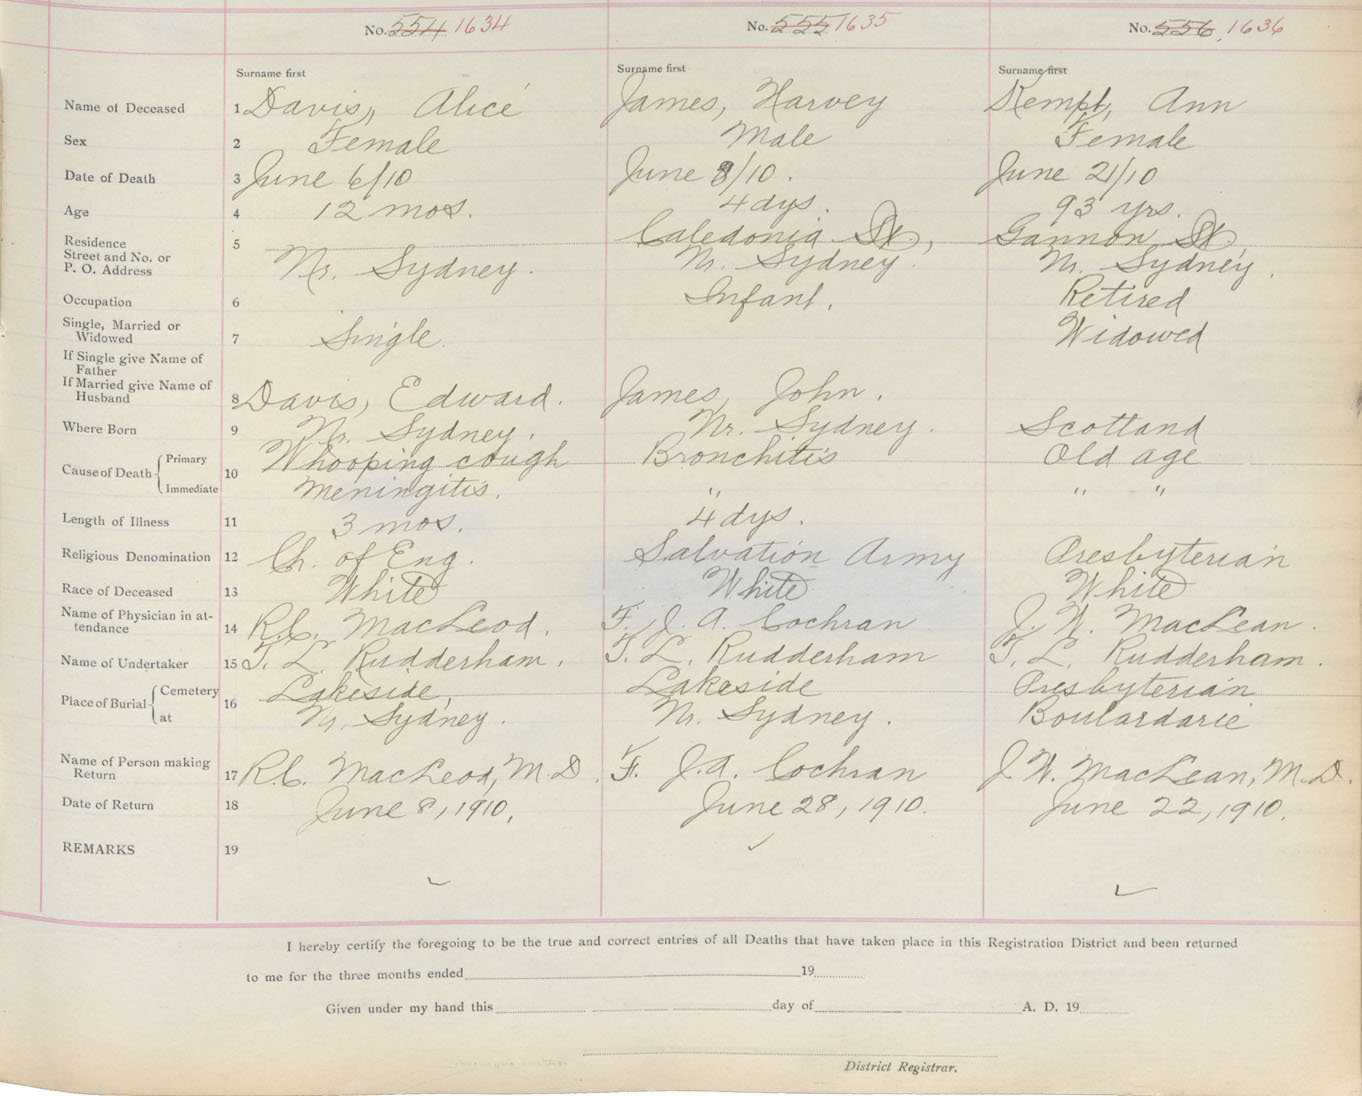 No. 554 1634 No. 555 1635 No. 556 1636
Surname first Surname first Surname first
Name of Deceased 1 Davis, Alice James, Harvey Kempt, Ann
Sex 2 Female Male Female
Date of Death 3 June 6/10 June 8/10. June 21/10
Age 4 12 mos. 4 dys. 93 yrs.
Residence 5 Caledonia St, Gannon St,
Street and No. or
P. O. Address Nr. Sydney. Nr. Sydney. Nr. Sydney.
Occupation 6 Infant. Retired
Single, Married or
Widowed 7 Single. Widowed
If Single give Name of
Father
If Married give Name of
Husband 8 Davis, Edward. James, John.
Where Born 9 Nr. Sydney. Nr. Sydney. Scotland
Cause of Death Primary 10 Whooping cough Bronchitis Old age
Immediate Meningitis. " " "
Length of Illness 11 3 mos. 4 dys.
Religious Denomination 12 Ch. of Eng. Salvation Army Presbyterian
Race of Deceased 13 White White White
Name of Physician in at-
tendance 14 R.C. MacLeod. F. J. A. Cochran J. W. MacLean.
Name of Undertaker 15 T. L. Rudderham. T. L. Rudderham T. L. Rudderham.
Place of Burial Cemetery 16 Lakeside, Lakeside Presbyterian
at Nr. Sydney. Nr. Sydney. Boulardarie
Name of Person making
Return 17 R.C. MacLeod, M.D. F. J.A. Cochran J. W. MacLean, M.D.
Date of Return 18 June 8, 1910. June 28, 1910. June 22, 1910.
REMARKS 19
I hereby certify the foregoing to be the true and correct entries of all Deaths that have taken place in this Registration District and been returned
to me for the three months ended 19
Given under my hand this day of A. D. 19
District Registrar.